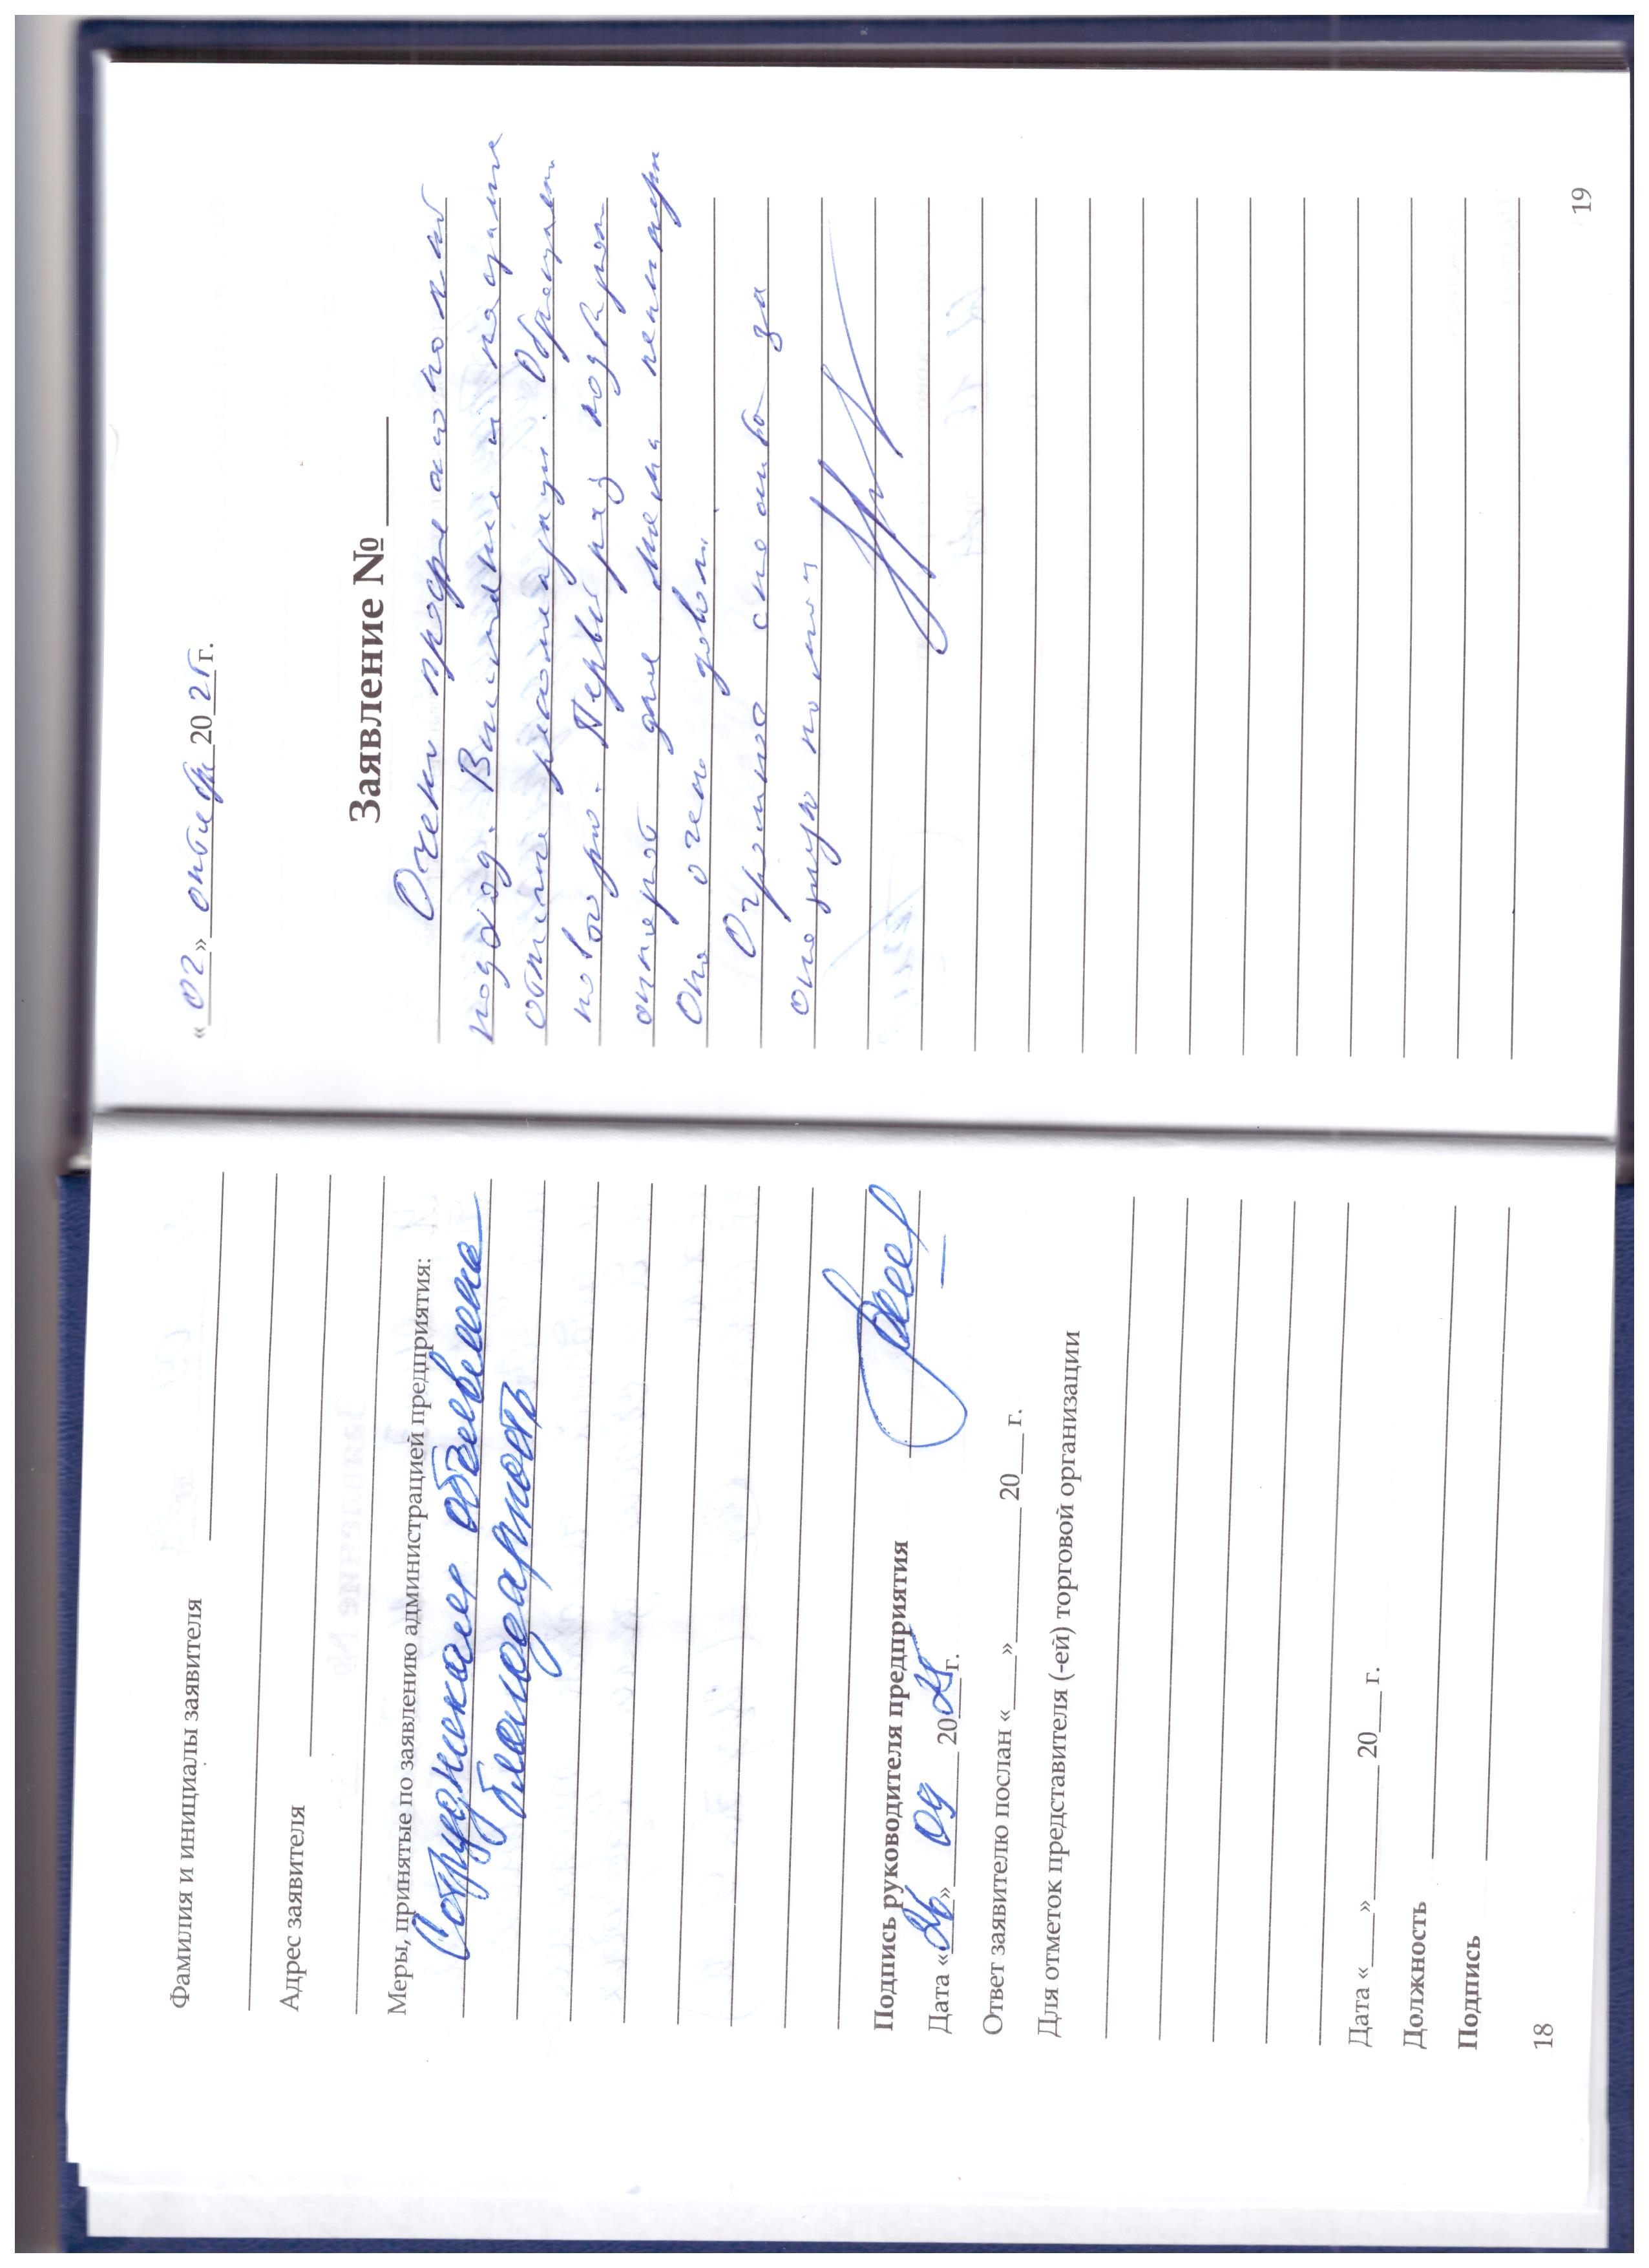 Фамилия и инициалы заявителя
Адрес заявителя
Меры, принятые по заявлению администрацией предприятия:
Сотрудникам объявлена
благодарность
Подпись руководителя предприятия
Дата «26» 09 2025г.
Ответ заявителю послан «___» ______ 20___ г.
Для отметок представителя (-ей) торговой организации
Дата «___» ______ 20___ г.
Должность
Подпись
18
«02» октября 2025г.
Заявление №
Очень профессиональный
подход. Внимание и
Обращаюсь
повторно. Первый раз подбирал
для мамы
Она очень довольна.
Огромное спасибо за
19